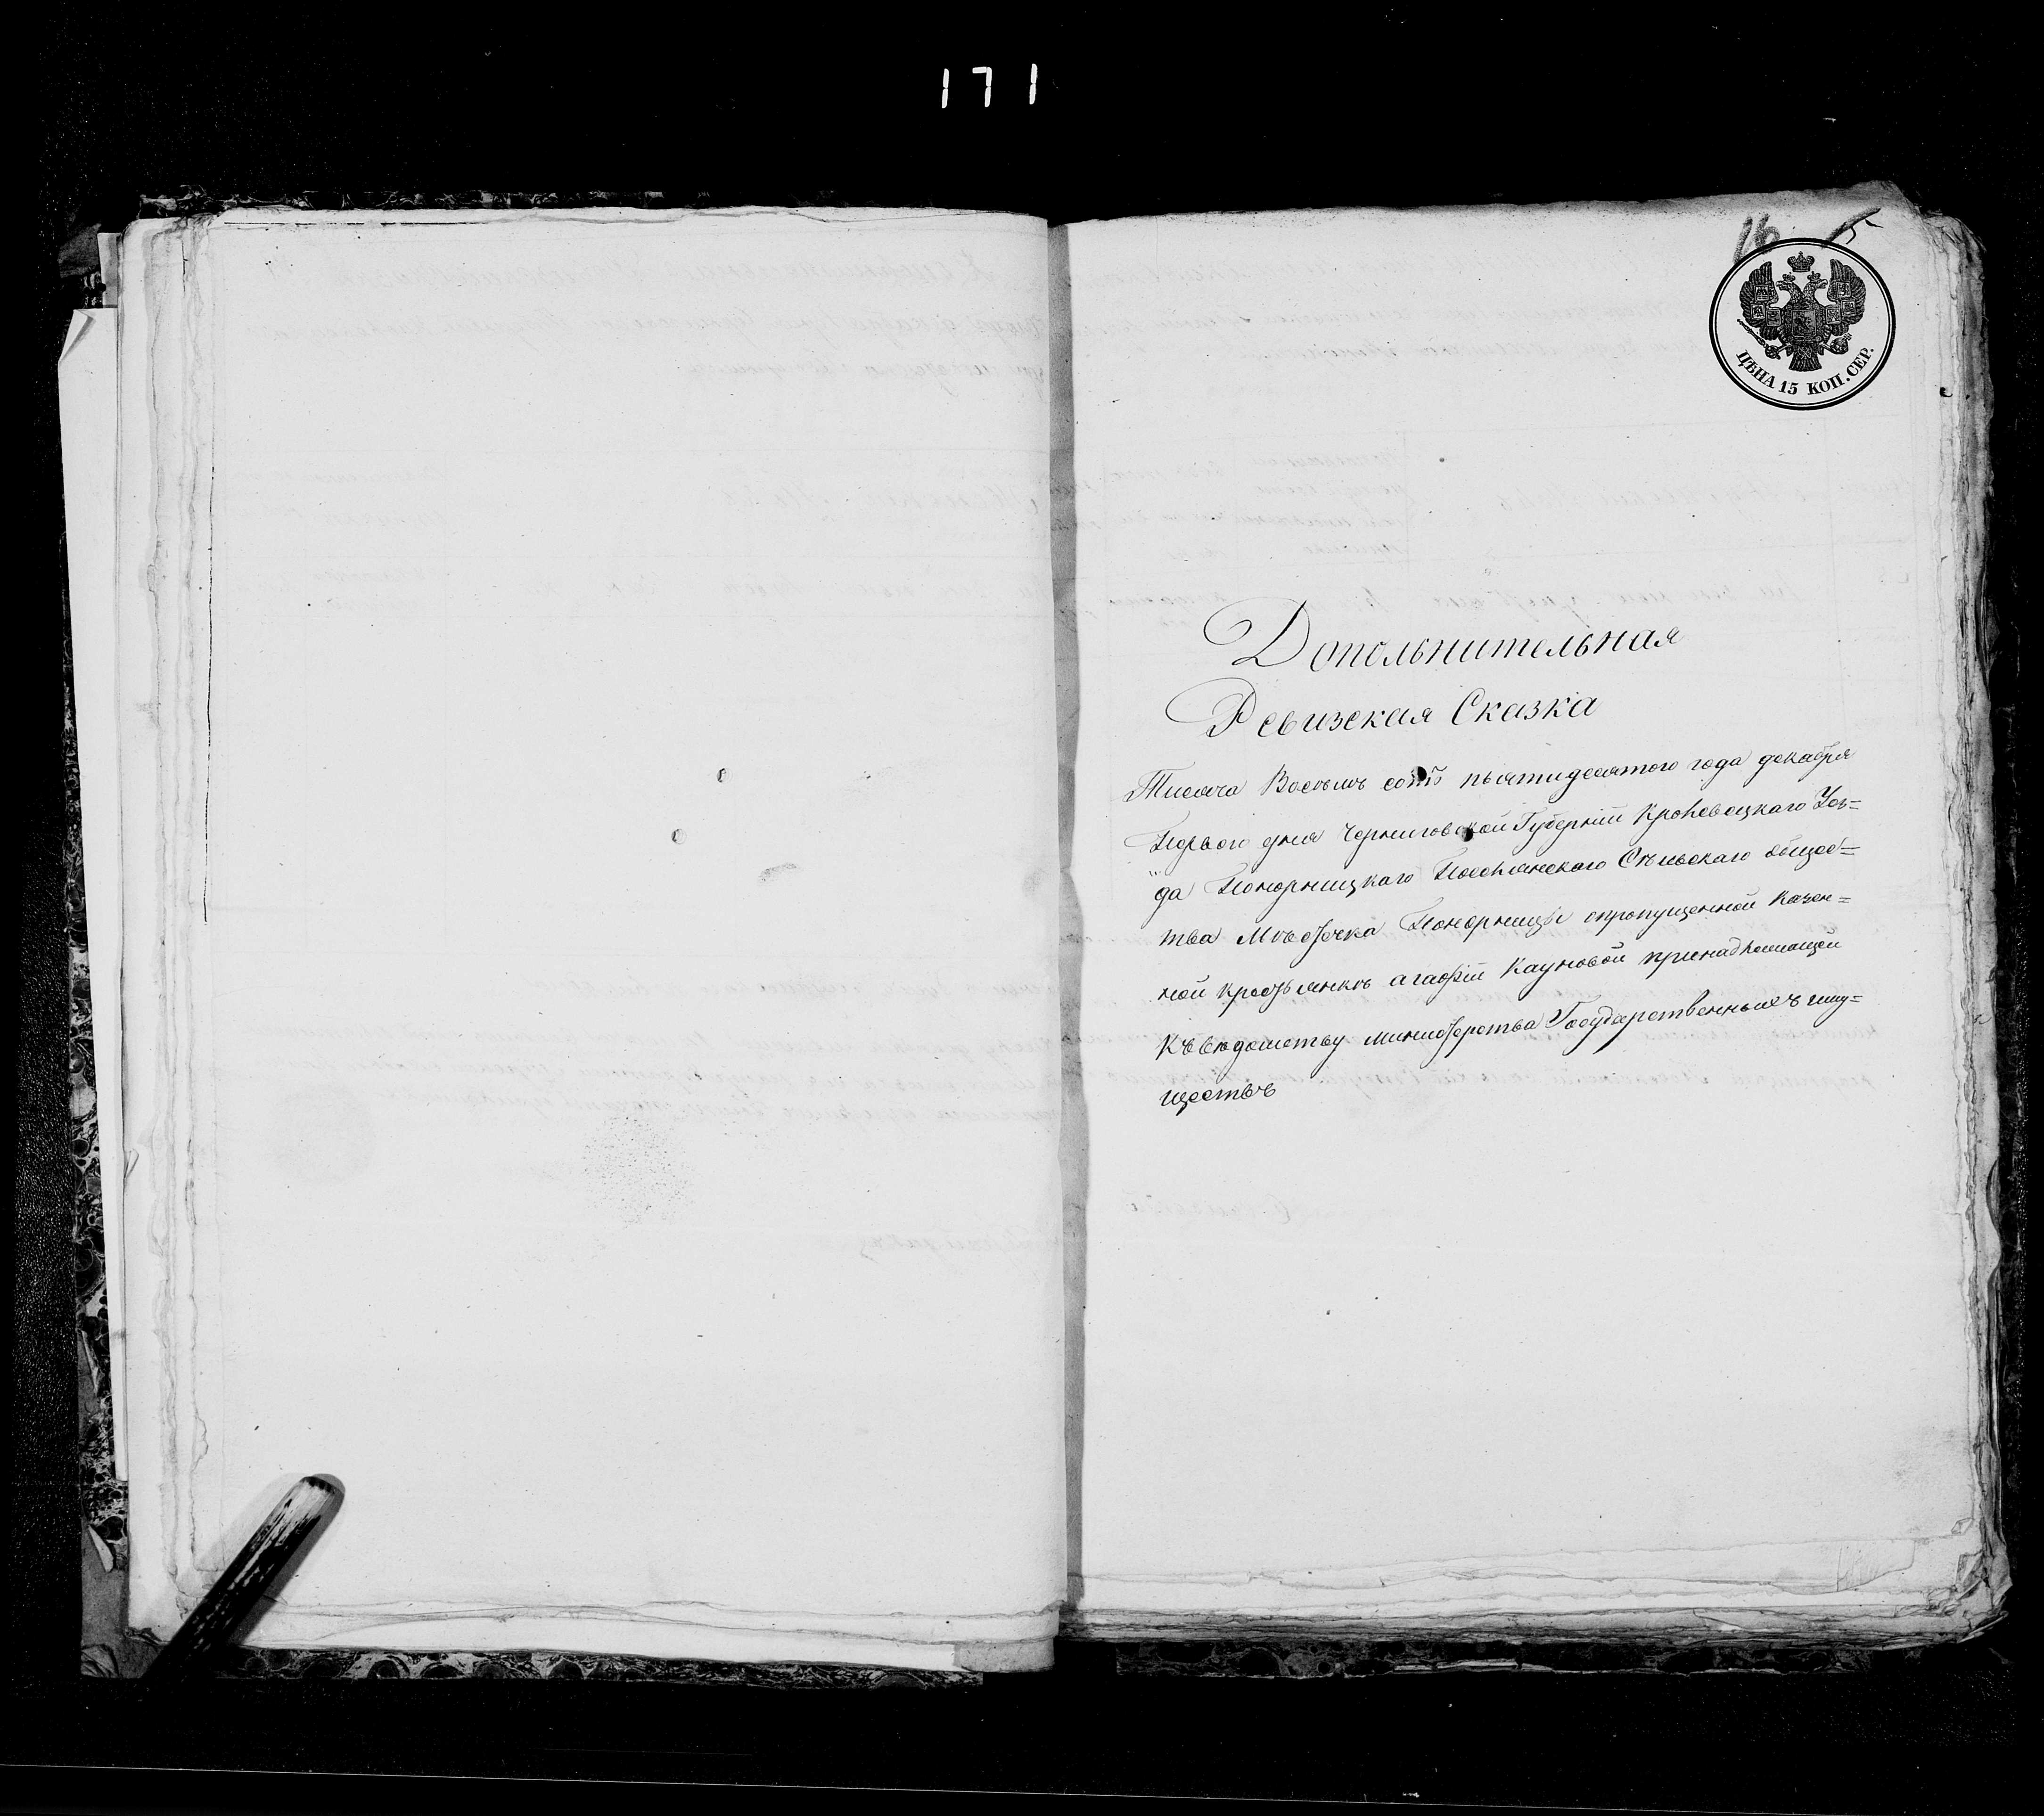 171
16 15
ЦѢНА 15 КОП. СЕР.
Допольнительная
Ревизская Сказка
Тисяча Восемь сотъ пьятидесятого года декабря
Первого дня Черниговской Губерніи Кролевецкаго Уез=
да Понорницкаго Поселянского Сельскаго общес=
тва Мѣстечка Понорницы опропущенной Казен=
ной крестьянкѣ агафіи Кауновой принадлежащей
Къ вѣдомству министерства Государственныхъ иму=
ществъ